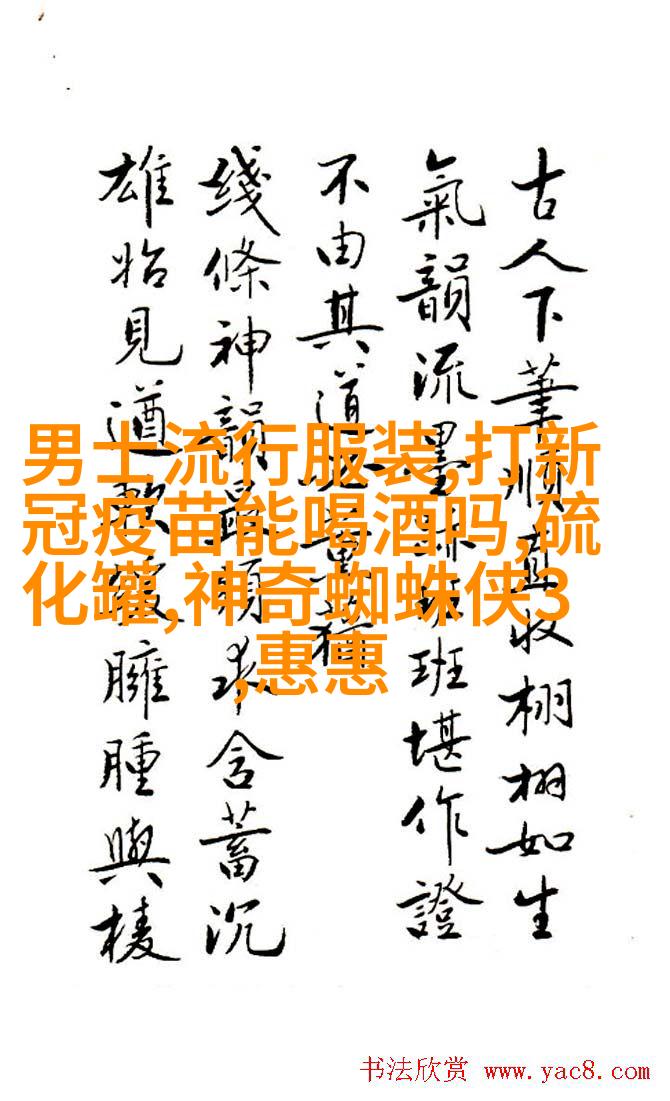 古人下筆順直收栩栩如生
氣韻流墨跡班班堪作證
不由其道
綫條神韻最須求含蓄沉
雄始見遒臃腫與棱
男士流行服装,打新
冠疫苗能喝酒吗,硫
化罐,神奇蜘蛛侠3
,惠惠
书法欣赏 www.yac8.com